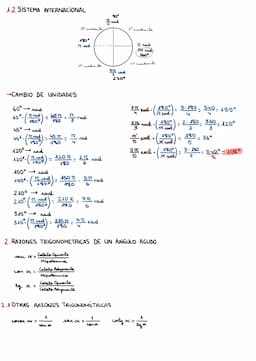 1.2 SISTEMA INTERNACIONAL
90°
π/2 rad
2º cuadrante
1º cuadrante
180°
π rad
0 rad
360°
3º cuadrante
4º cuadrante
3π/2 rad
270°
→ CAMBIO DE UNIDADES
60° → rad
60° · (π rad / 180°) = 60π/180 = π/3 rad
45° → rad
45° · (π rad / 180°) = 45π/180 = π/4 rad
120° → rad
120° · (π rad / 180°) = 120π/180 = 2π/3 rad
150° → rad
150° · (π rad / 180°) = 150π/180 = 5π/6 rad
210° → rad
210° (π rad / 180°) = 210π/180 = 7π/6
315° → rad
315° (π rad / 180°) = rad
3π/4 rad · (180° / π rad) = 3·180/4 = 540/4 = 135°
2π/3 rad · (180° / π rad) = 2·180/3 = 360/3 = 120°
π/5 rad · (180° / π rad) = 180/5 = 36°
rad · (180° / π rad) = = 108°
2. RAZONES TRIGONOMETRICAS DE UN ANGULO AGUDO
sen α = Cateto Opuesto / Hipotenusa
cos α = Cateto Adyacente / Hipotenusa
tg α = Cateto Opuesto / Cateto Adyacente
2.1 OTRAS RAZONES TRIGONOMÉTRICAS
cosec α = 1 / sen α sec α = 1 / cos α cotg α = 1 / tg α